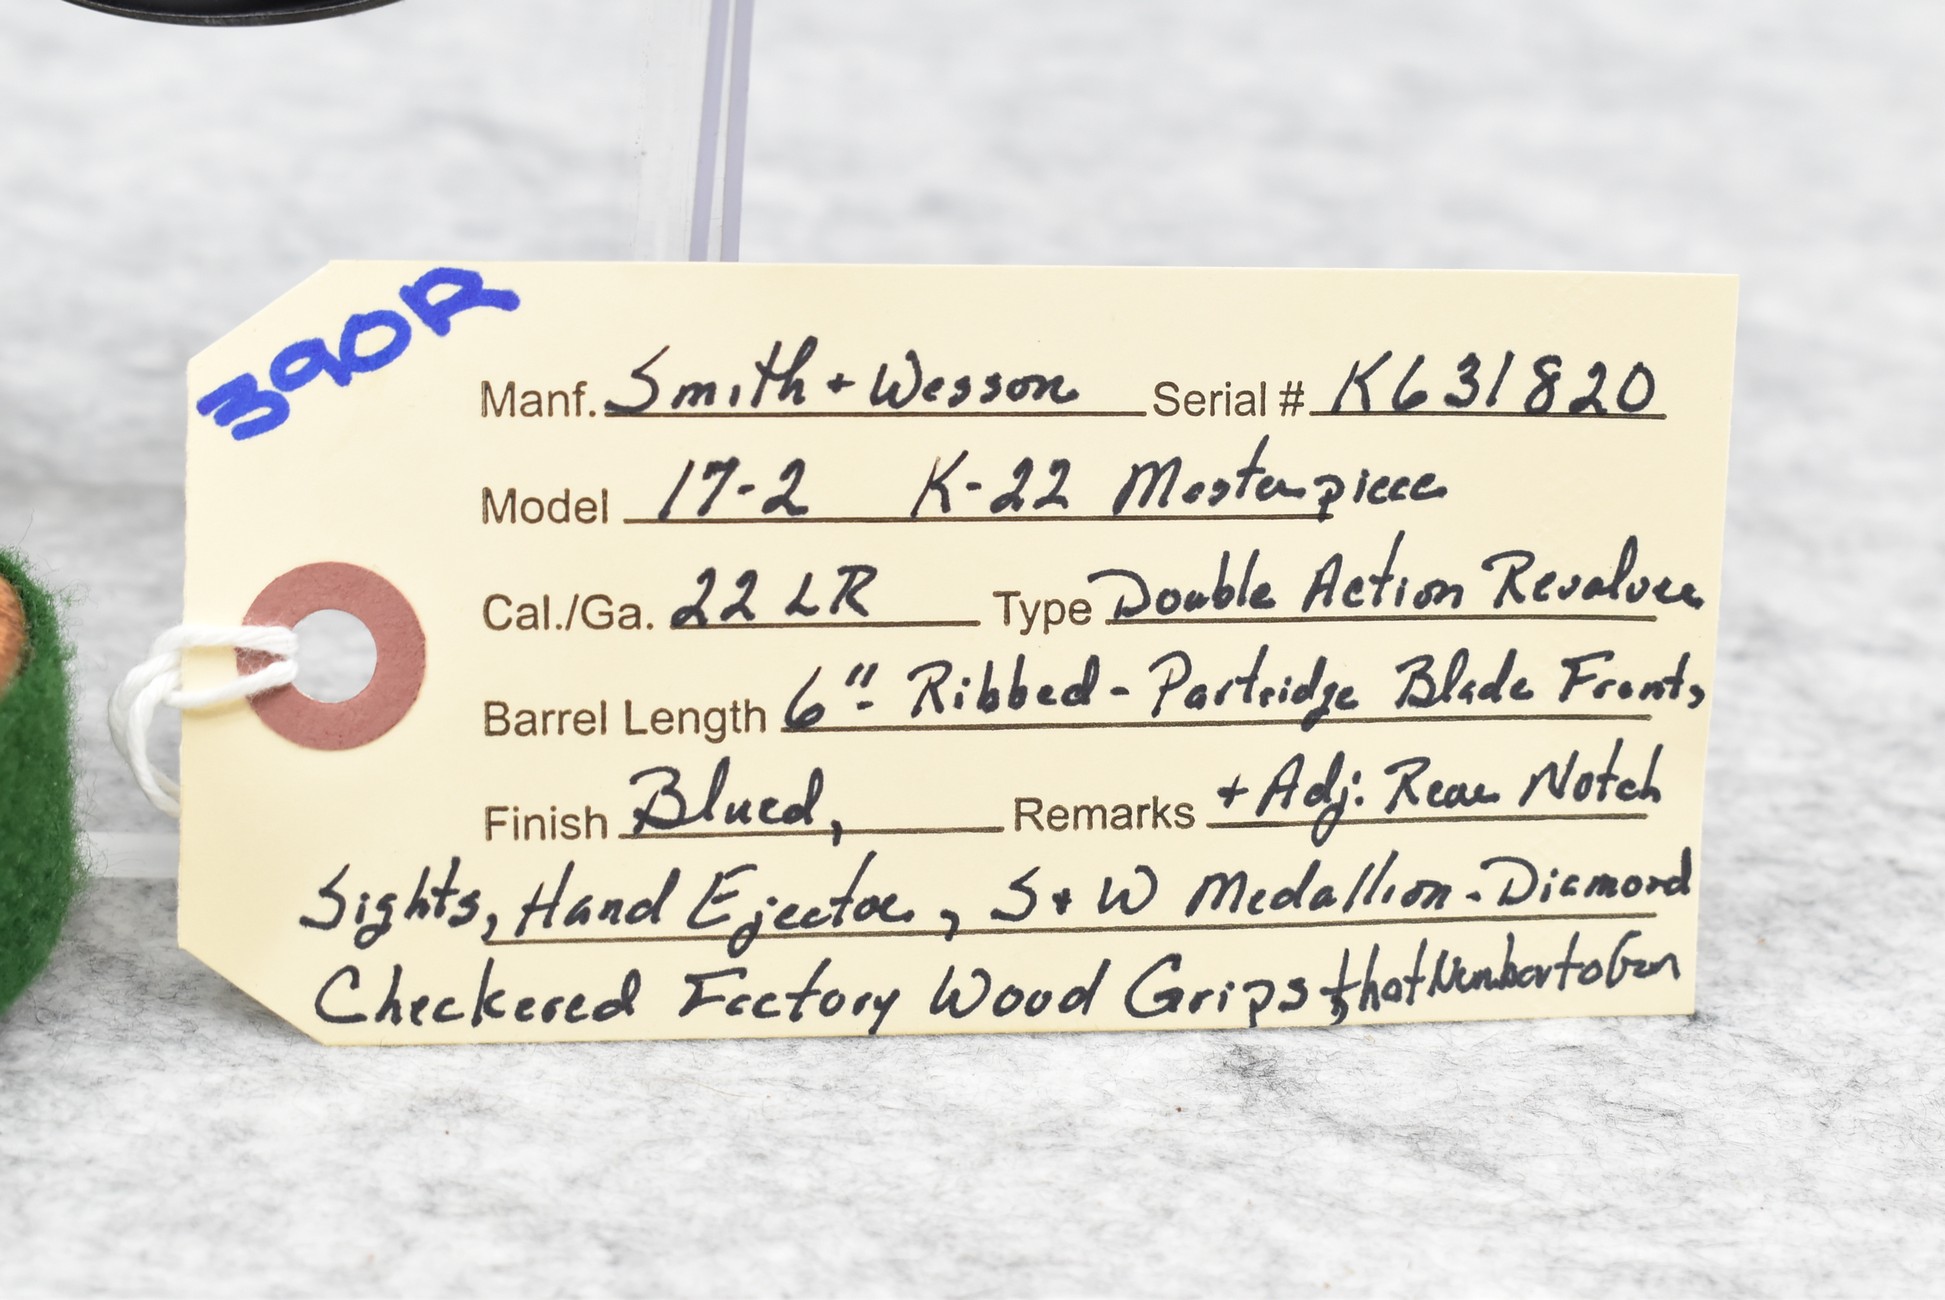 390R
Manf. Smith + Wesson Serial # K631820
Model 17-2 K-22 Masterpiece
Cal./Ga. 22 LR Type Double Action Revolver
Barrel Length 6" Ribbed - Partridge Blade Front,
Finish Blued, Remarks + Adj. Rear Notch
Sights, Hand Ejector, S+W Medallion - Diamond
Checkered Factory Wood Grips that Number to Gun